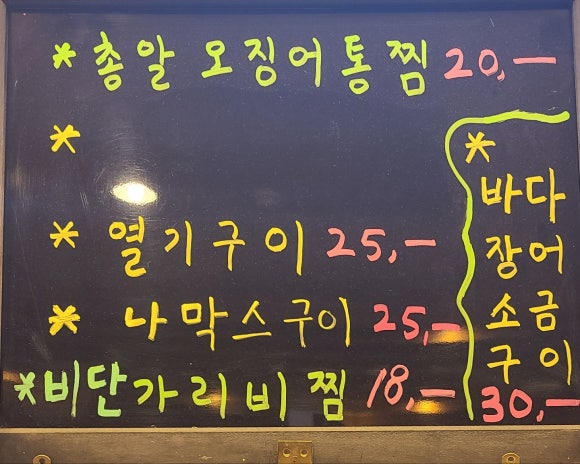 * 총알 오징어통찜 20,-
*
* 열기구이 25,-
* 나막스구이 25,-
*비단가리비찜 18,-
*
바다
장어
소금
구이
30,-